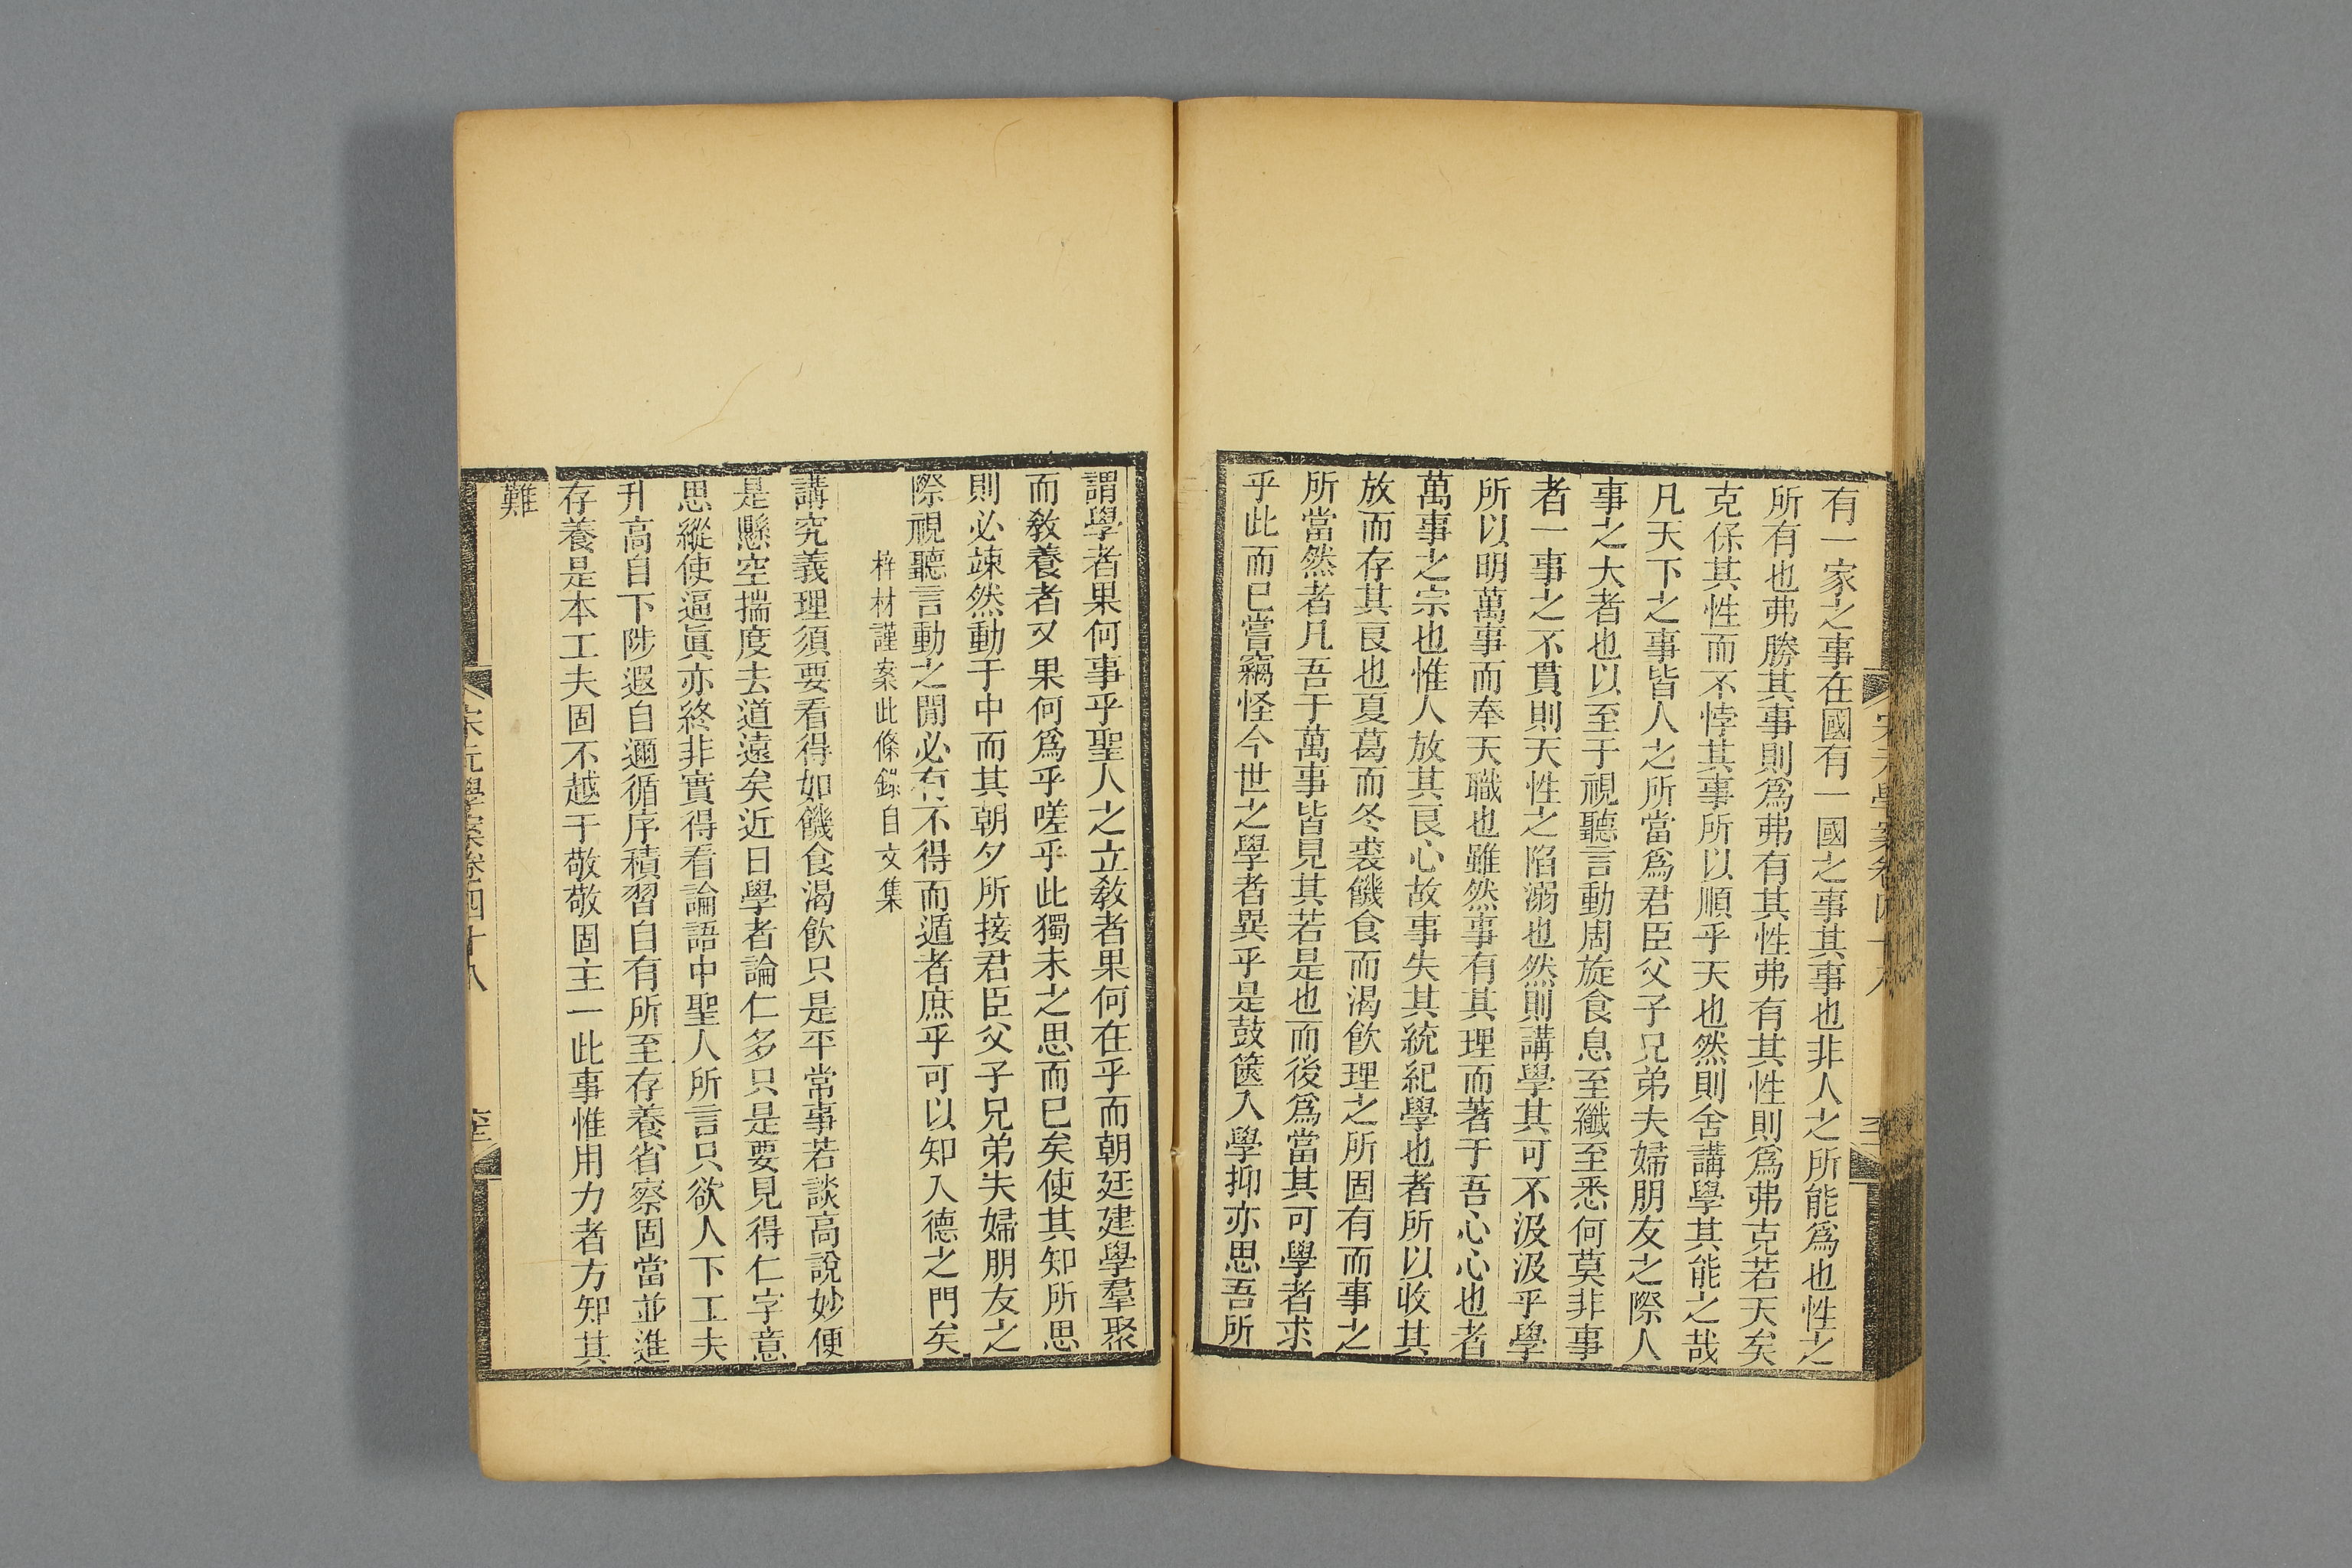 有一家之事在國有一國之事其事也非人之所能爲也性之
所有也弗勝其事則爲弗有其性弗有其性則爲弗克若天矣
克保其性而不悖其事所以順乎天也然則舍講學其能之哉
凡天下之事皆人之所當爲君臣父子兄弟夫婦朋友之際人
事之大者也以至于視聽言動周旋食息至纖至悉何莫非事
者一事之不貫則天性之陷溺也然則講學其可不汲汲乎學
所以明萬事而奉天職也雖然事有其理而著于吾心心也者
萬事之宗也惟人放其良心故事失其統紀學也者所以收其
放而存其良也夏葛而冬裘饑食而渴飲理之所固有而事之
所當然者凡吾于萬事皆見其若是也而後爲當其可學者求
乎此而已嘗竊怪今世之學者異乎是鼓篋入學抑亦思吾所
謂學者果何事乎聖人之立敎者果何在乎而朝廷建學羣聚
而敎養者又果何爲乎嗟乎此獨未之思而已矣使其知所思
則必竦然動于中而其朝夕所接君臣父子兄弟夫婦朋友之
際視聽言動之閒必有不得而遁者庶乎可以知入德之門矣
梓材謹案此條錄自文集
講究義理須要看得如饑食渴飲只是平常事若談高說妙便
是懸空揣度去道遠矣近日學者論仁多只是要見得仁字意
思縱使逼眞亦終非實得看論語中聖人所言只欲人下工夫
升高自下陟遐自邇循序積習自有所至存養省察固當並進
存養是本工夫固不越于敬敬固主一此事惟用力者方知其
難
宋元學案卷四十八